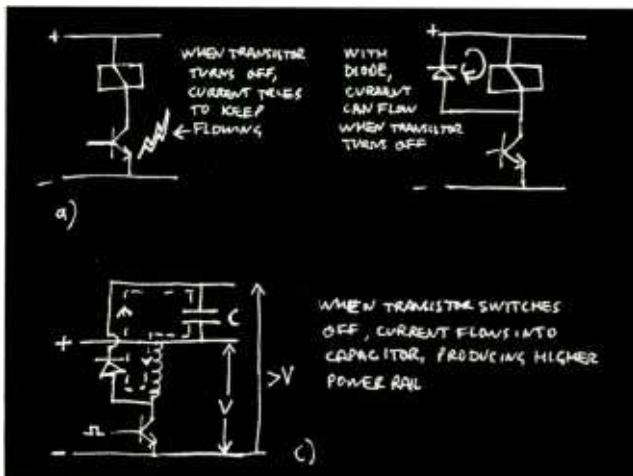 +
WHEN TRANSISTOR
TURNS OFF,
CURRENT TRIES
TO KEEP
FLOWING
-
a)
+
WITH
DIODE,
CURRENT
CAN FLOW
WHEN TRANSISTOR
TURNS OFF
-
C
+
V
>V
-
c)
WHEN TRANSISTOR SWITCHES
OFF, CURRENT FLOWS INTO
CAPACITOR, PRODUCING HIGHER
POWER RAIL